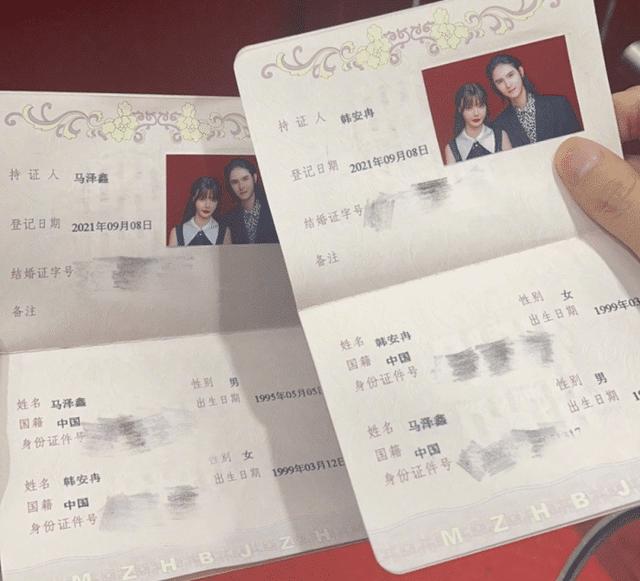 持证人 马泽鑫
登记日期 2021年09月08日
结婚证字号
备注
姓名 马泽鑫
性别 男
国籍 中国
出生日期 1995年05月05日
身份证件号
姓名 韩安冉
性别 女
国籍 中国
出生日期 1999年03月12日
身份证件号
MZHBJZH
持证人 韩安冉
登记日期 2021年09月08日
结婚证字号
备注
姓名 韩安冉
性别 女
国籍 中国
出生日期 1999年03
身份证件号
姓名 马泽鑫
性别 男
国籍 中国
出生日期
身份证件号
MZHBJ